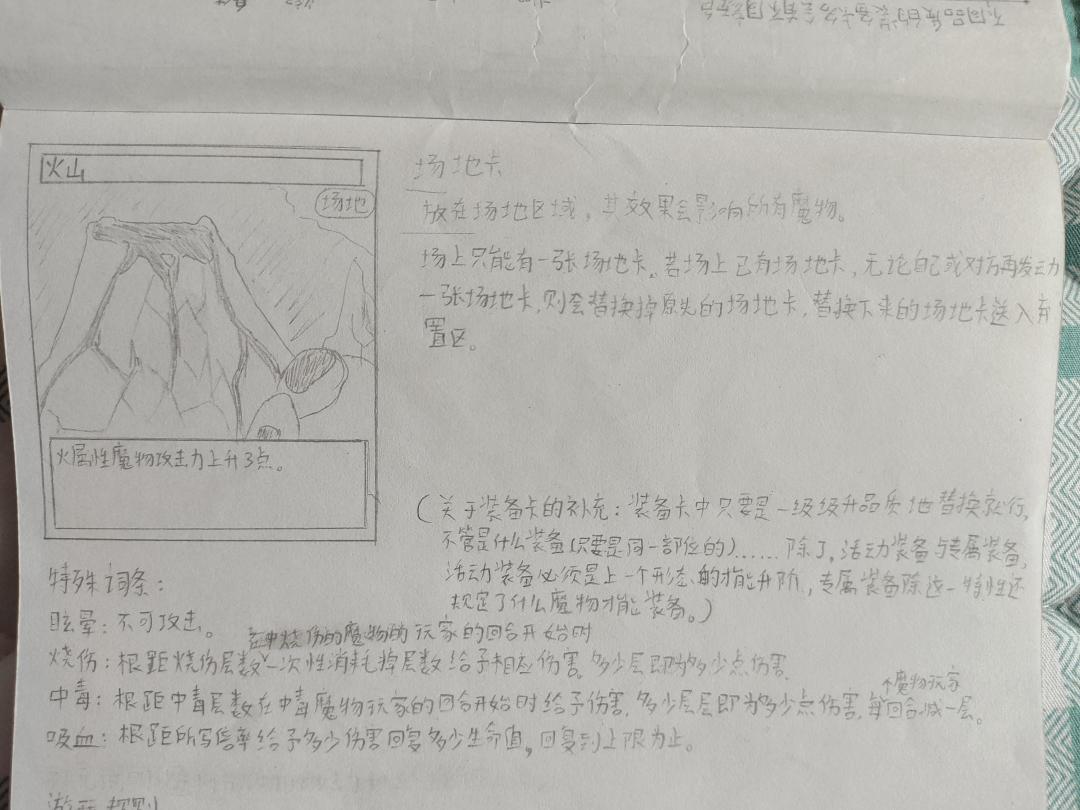 不同品质的装备卡
火山
场地
场地卡
放在场地区域，其效果会影响所有魔物。
场上只能有一张场地卡。若场上已有场地卡，无论自己或对方再发动
一张场地卡，则会替换掉原先的场地卡，替换下来的场地卡送入弃
置区。
火属性魔物攻击力上升3点。
（关于装备卡的补充：装备卡中只要是一级级升品质地替换就行，
不管是什么装备（只要是同一部位的）……除了，活动装备与专属装备，
活动装备必须是上一个形态的才能升阶，专属装备除这一特性还
规定了什么魔物才能装备。）
特殊词条：
眩晕：不可攻击。
在中烧伤的魔物的玩家的回合开始时
烧伤：根距烧伤层数一次性消耗掉层数给予相应伤害。多少层即为多少点伤害
个魔物玩家
中毒：根距中毒层数在中毒魔物玩家的回合开始时给予伤害，多少层层即为多少点伤害，每回合减一层。
吸血：根距所写倍率给予多少伤害回复多少生命值，回复到上限为止。
游玩规则